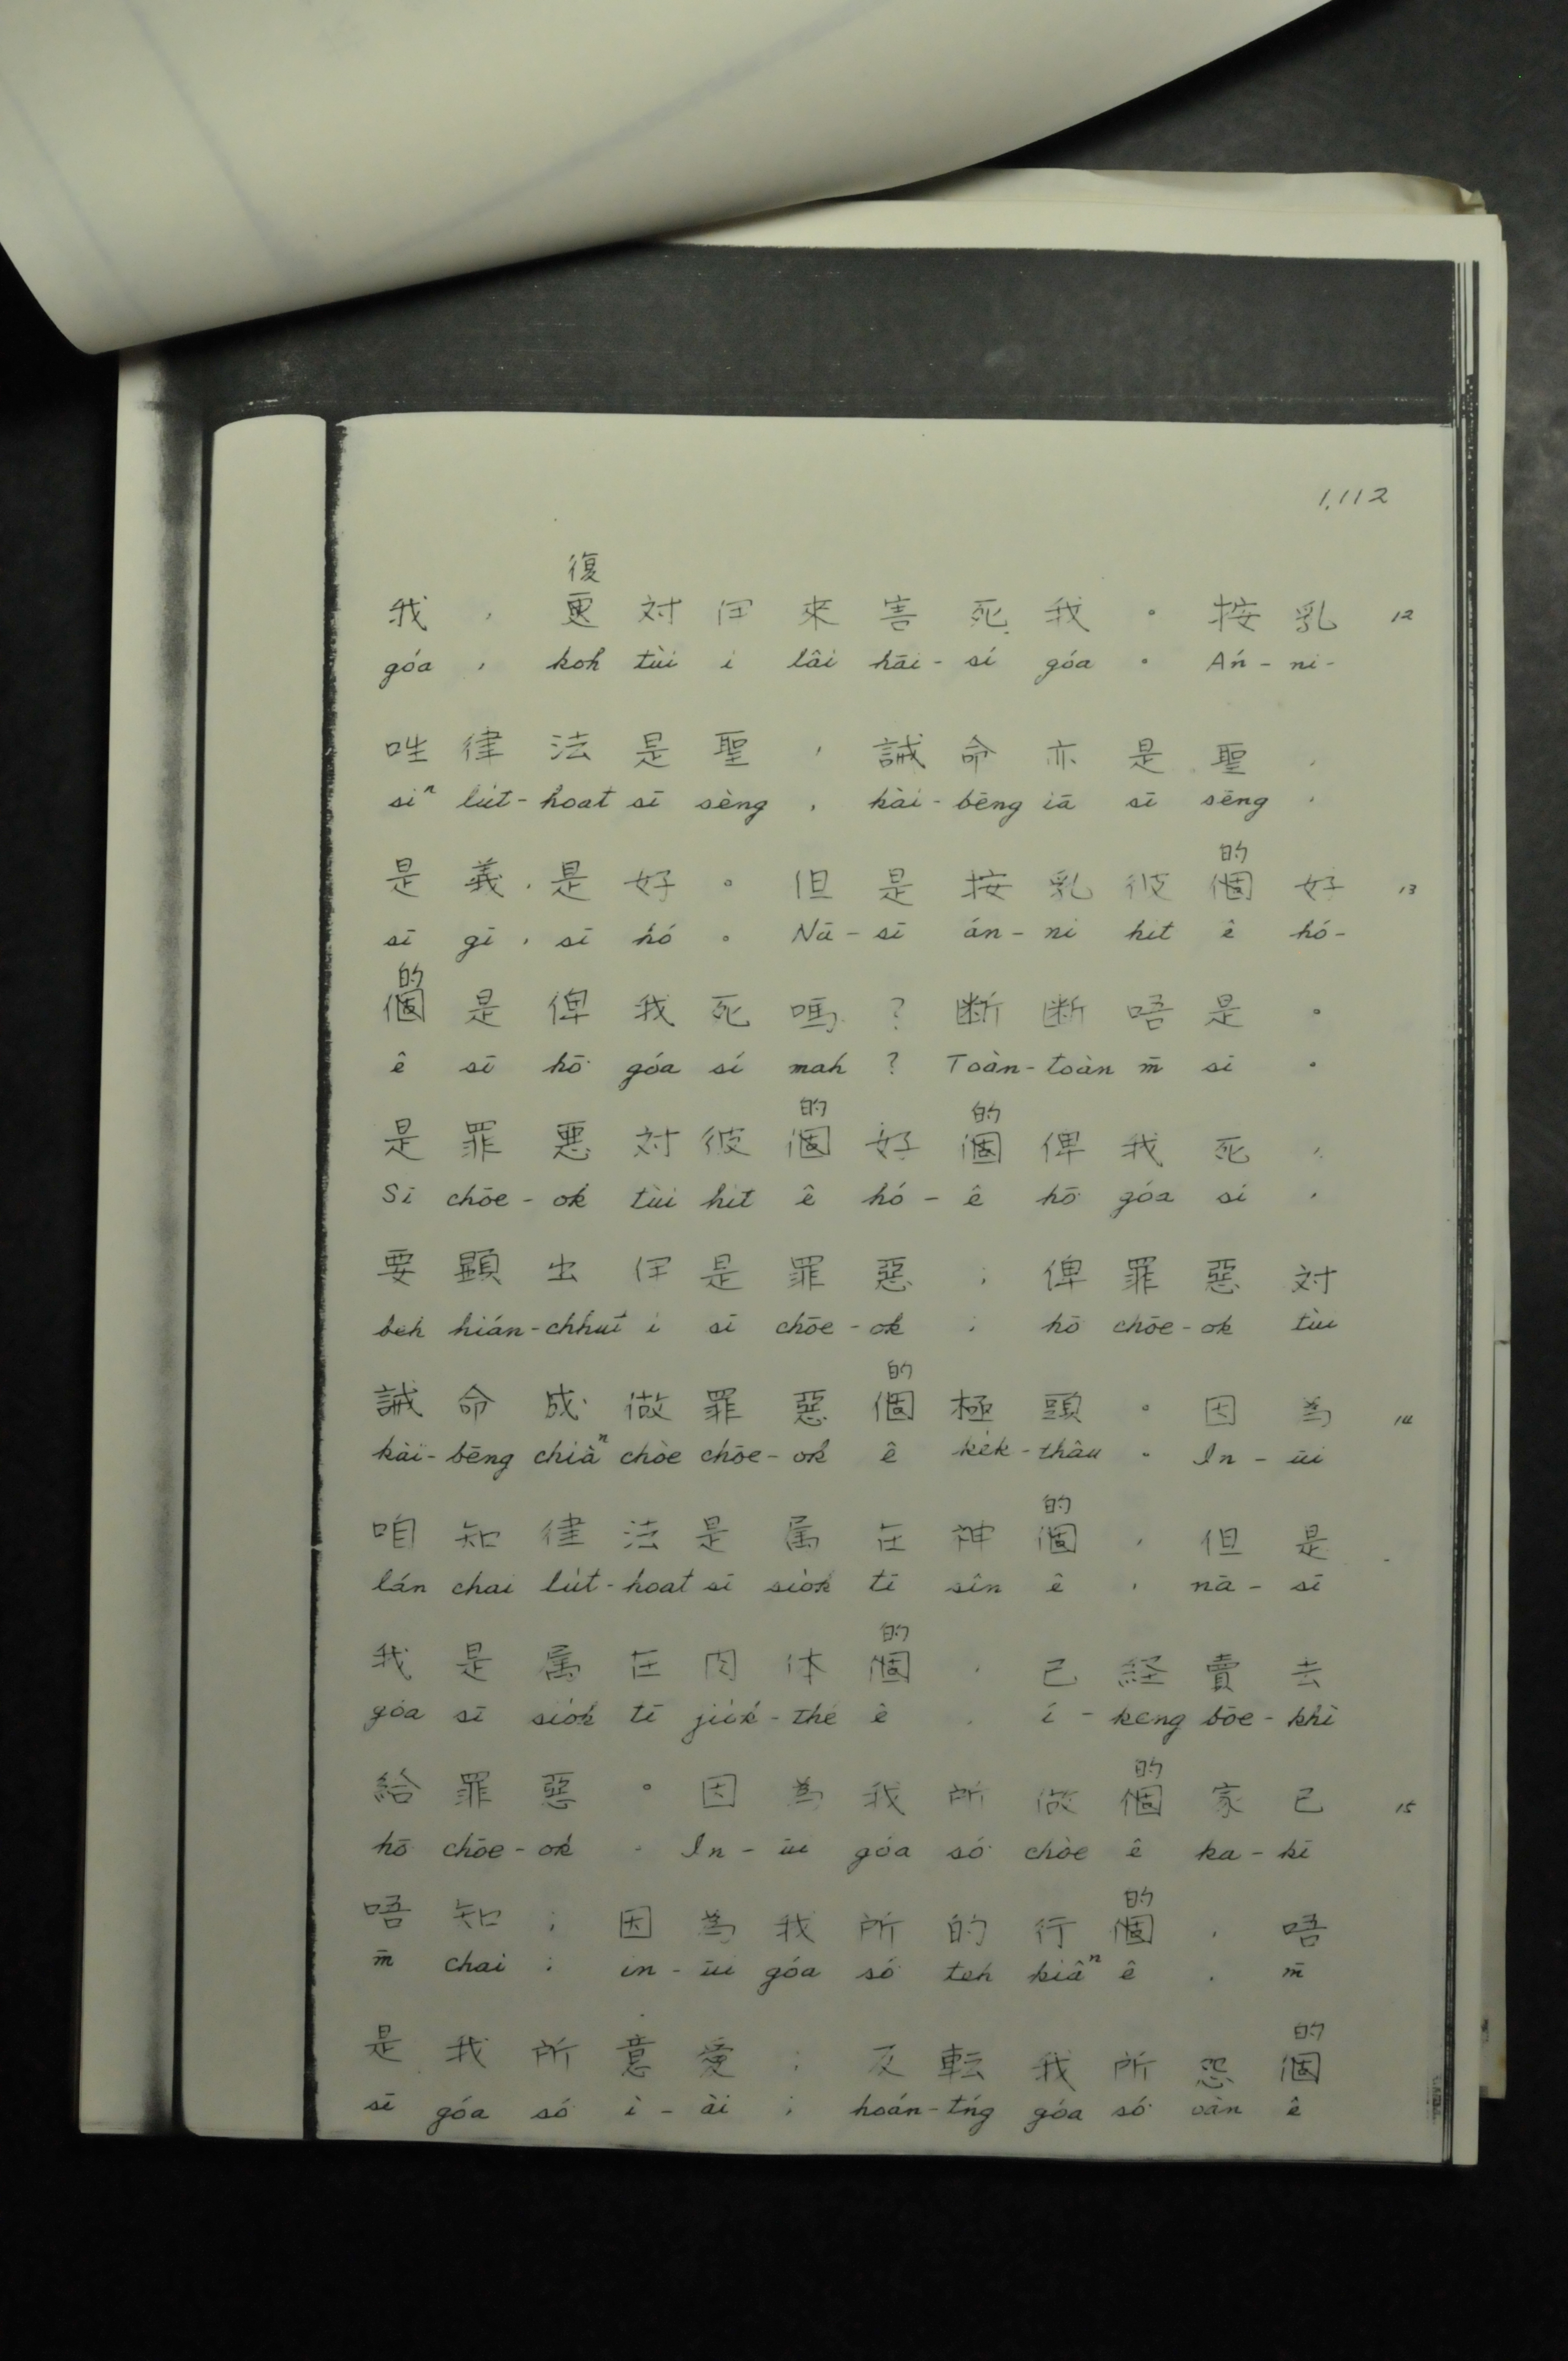 1,112
復
我，更対伊來害死我。按乳 12
góa, koh tùi i lâi hāi-sí góa. Án-ni-
呰律法是聖，誡命亦是聖，
siⁿ lu̍t-hoat sī sèng, kài-bēng iā sī sēng,
的
是義，是好。但是按乳彼個好 13
sī gī, sī hó. Nā-sī án-ni hit ê hó-
的
個是俾我死嗎？断断唔是。
ê sī hō͘ góa sí mah? Toàn-toàn m̄ sī.
的 的
是罪悪対彼個好個俾我死，
Sī chōe-ok tùi hit ê hó-ê hō͘ góa sí,
要顕出伊是罪惡；俾罪惡対
beh hián-chhut i sī chōe-ok; hō͘ chōe-ok tùi
的
誡命成做罪惡個極頭。因為 14
kài-bēng chiâⁿ chòe chōe-ok ê ke̍k-thâu. In-ūi
的
咱知律法是属在神個，但是
lán chai lu̍t-hoat sī sio̍k tī sîn ê, nā-sī
的
我是属在肉体個，己経賣去
góa sī sio̍k tī jio̍k-thé ê, í-keng bōe-khì
的
給罪惡。因為我所做個家己 15
hō͘ chōe-ok. In-ūi góa só͘ chòe ê ka-kī
的
唔知；因為我所的行個，唔
m̄ chai; in-ūi góa só͘ teh kiâⁿ ê, m̄
的
是我所意愛；反転我所怨個
sī góa só͘ ì-ài; hoán-tńg góa só͘ oàn ê